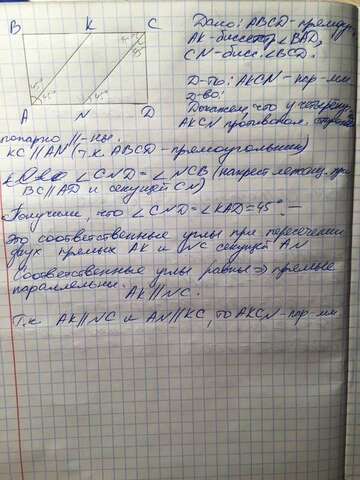 B K C
A N D
Дано: ABCD - прямоуг.
AK - биссект. ∠BAD,
CN - бисс. ∠BCD.
Д-ть: AKCN - пар-мм
Д-во:
Докажем, что у четырёх.
AKCN противопол. стороны
попарно ||-ны.
KC || AN (т.к. ABCD - прямоугольник)
∠CND = ∠NCB (накрест лежащ. при
BC || AD и секущей CN)
Получили, что ∠CND = ∠KAD = 45° —
Это соответственные углы при пересечении
двух прямых AK и NC секущей AN
Соответственные углы равны => прямые
параллельны.
AK || NC.
Т.к AK || NC и AN || KC, то AKCN - пар-мм